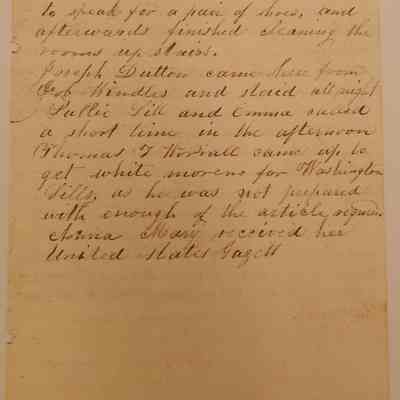 to speak for a pair of shoes, and
afterwards finished cleaning the
rooms up stairs.
Joseph Dutton came here from
Job Windles and staid all night
Sallie Sill and Emma called
a short time in the afternoon
Thomas T Worrall came up to
get white moreno for Washington
Sills, as he was not prepared
with enough of the article required.
Anna Mary received her
United States Gazett